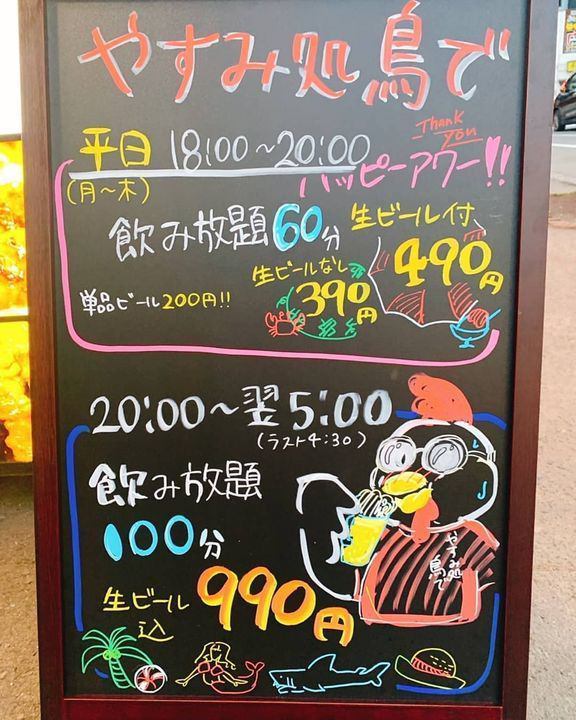 やすみ処 鳥で
Thank you
平日 18:00～20:00
(月～木)
ハッピーアワー!!
飲み放題60分
生ビール付、
490円
生ビールなし
390円
単品ビール200円!!
20:00～翌5:00
(ラスト4:30)
飲み放題
100分
生ビール込
990円
やすみ処
鳥で